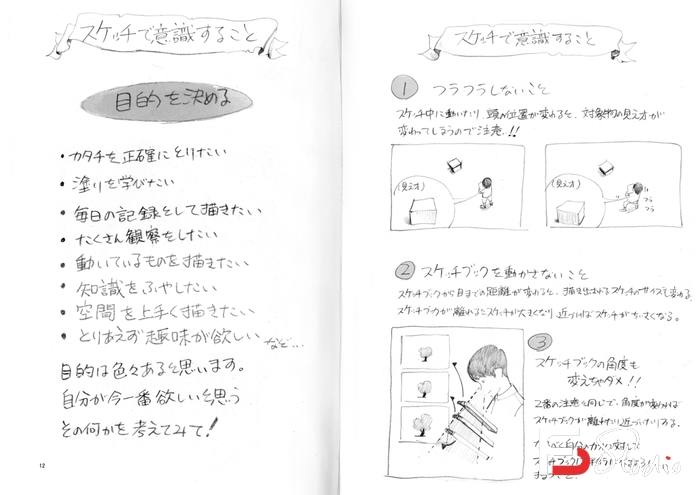 スケッチで意識すること
目的を決める
・カタチを正確にとりたい
・塗りを学びたい
・毎日の記録として描きたい
・たくさん観察をしたい
・動いているものを描きたい
・知識をふやしたい
・空間を上手く描きたい
・とりあえず趣味が欲しい
など…
目的は色々あると思います。
自分が今一番欲しいと思う
その何かを考えてみて!
12
スケッチで意識すること
1 フラフラしないこと
スケッチ中に動いたり、頭の位置が変わると、対象物の見え方が
変わってしまうので注意!!
(見え方)
(見え方)
フラ
フラ
2 スケッチブックを動かさないこと
スケッチブックから目までの距離が変わると、描き出されるスケッチのサイズも変わる。
スケッチブックが離れるとスケッチが大きくなり、近づけばスケッチが小さくなる。
3 スケッチブックの角度も
変えちゃダメ!!
2番の注意と同じで、角度が変われば
スケッチブックが離れたり近づいたりする。